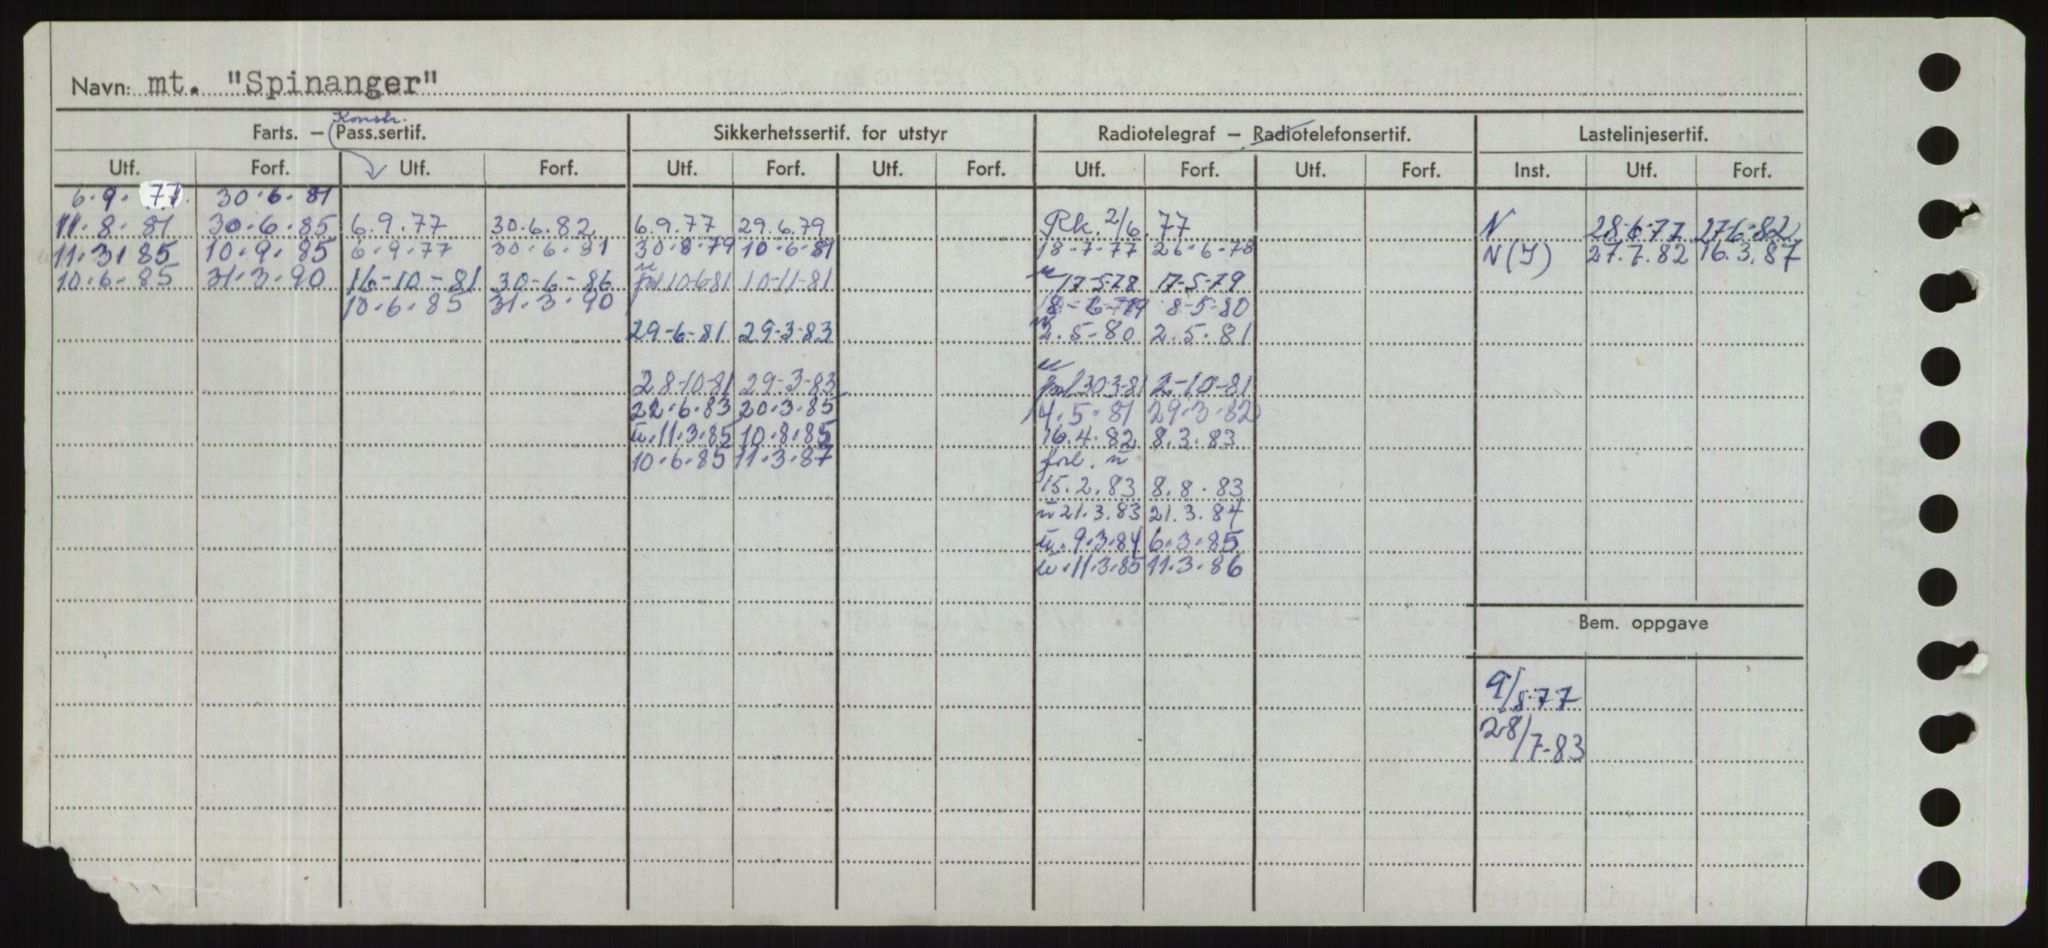 Navn: mt. "Spinanger"
Konstr.
Farts. – Pass.sertif. Sikkerhetssertif. for utstyr Radiotelegraf – Radiotelefonsertif. Lastelinjesertif.
Utf. Forf. Utf. Forf. Utf. Forf. Utf. Forf. Utf. Forf. Utf. Forf. Inst. Utf. Forf.
6.9.77. 30.6.81
11.8.81 30.6.85 6.9.77 30.6.82 6.9.77 29.6.79 Rk. 2/6.77 N 28.6.77 27.6.82
11.3.85 10.9.85 6.9.77 30.6.81 30.8.79 10.6.81 18-7-77 26-6-78 N(I) 27.7.82 16.3.87
10.6.85 31.3.90 16-10-81 30-6-86 10-6-81 10-11-81 17-5-78 17-5-79
10.6.85 31.3.90 8-5-80
29-6-81 29-3-83 2.5-80 2.5.81
28-10-81 29-3-83 30-3-81 2-10-81
22.6.83 20.3.85 4.5.81 29.3.82
ū.11.3.85 10.8.85 16.4.82 8.3.83
10.6.85 11.3.87 forl. ū
15.2.83 8.8.83
ū 21.3.83 21.3.84
ū. 9.3.84 6.3.85
ū.11.3.85 11.3.86
Bem. oppgave
9/8-77
28/7-83